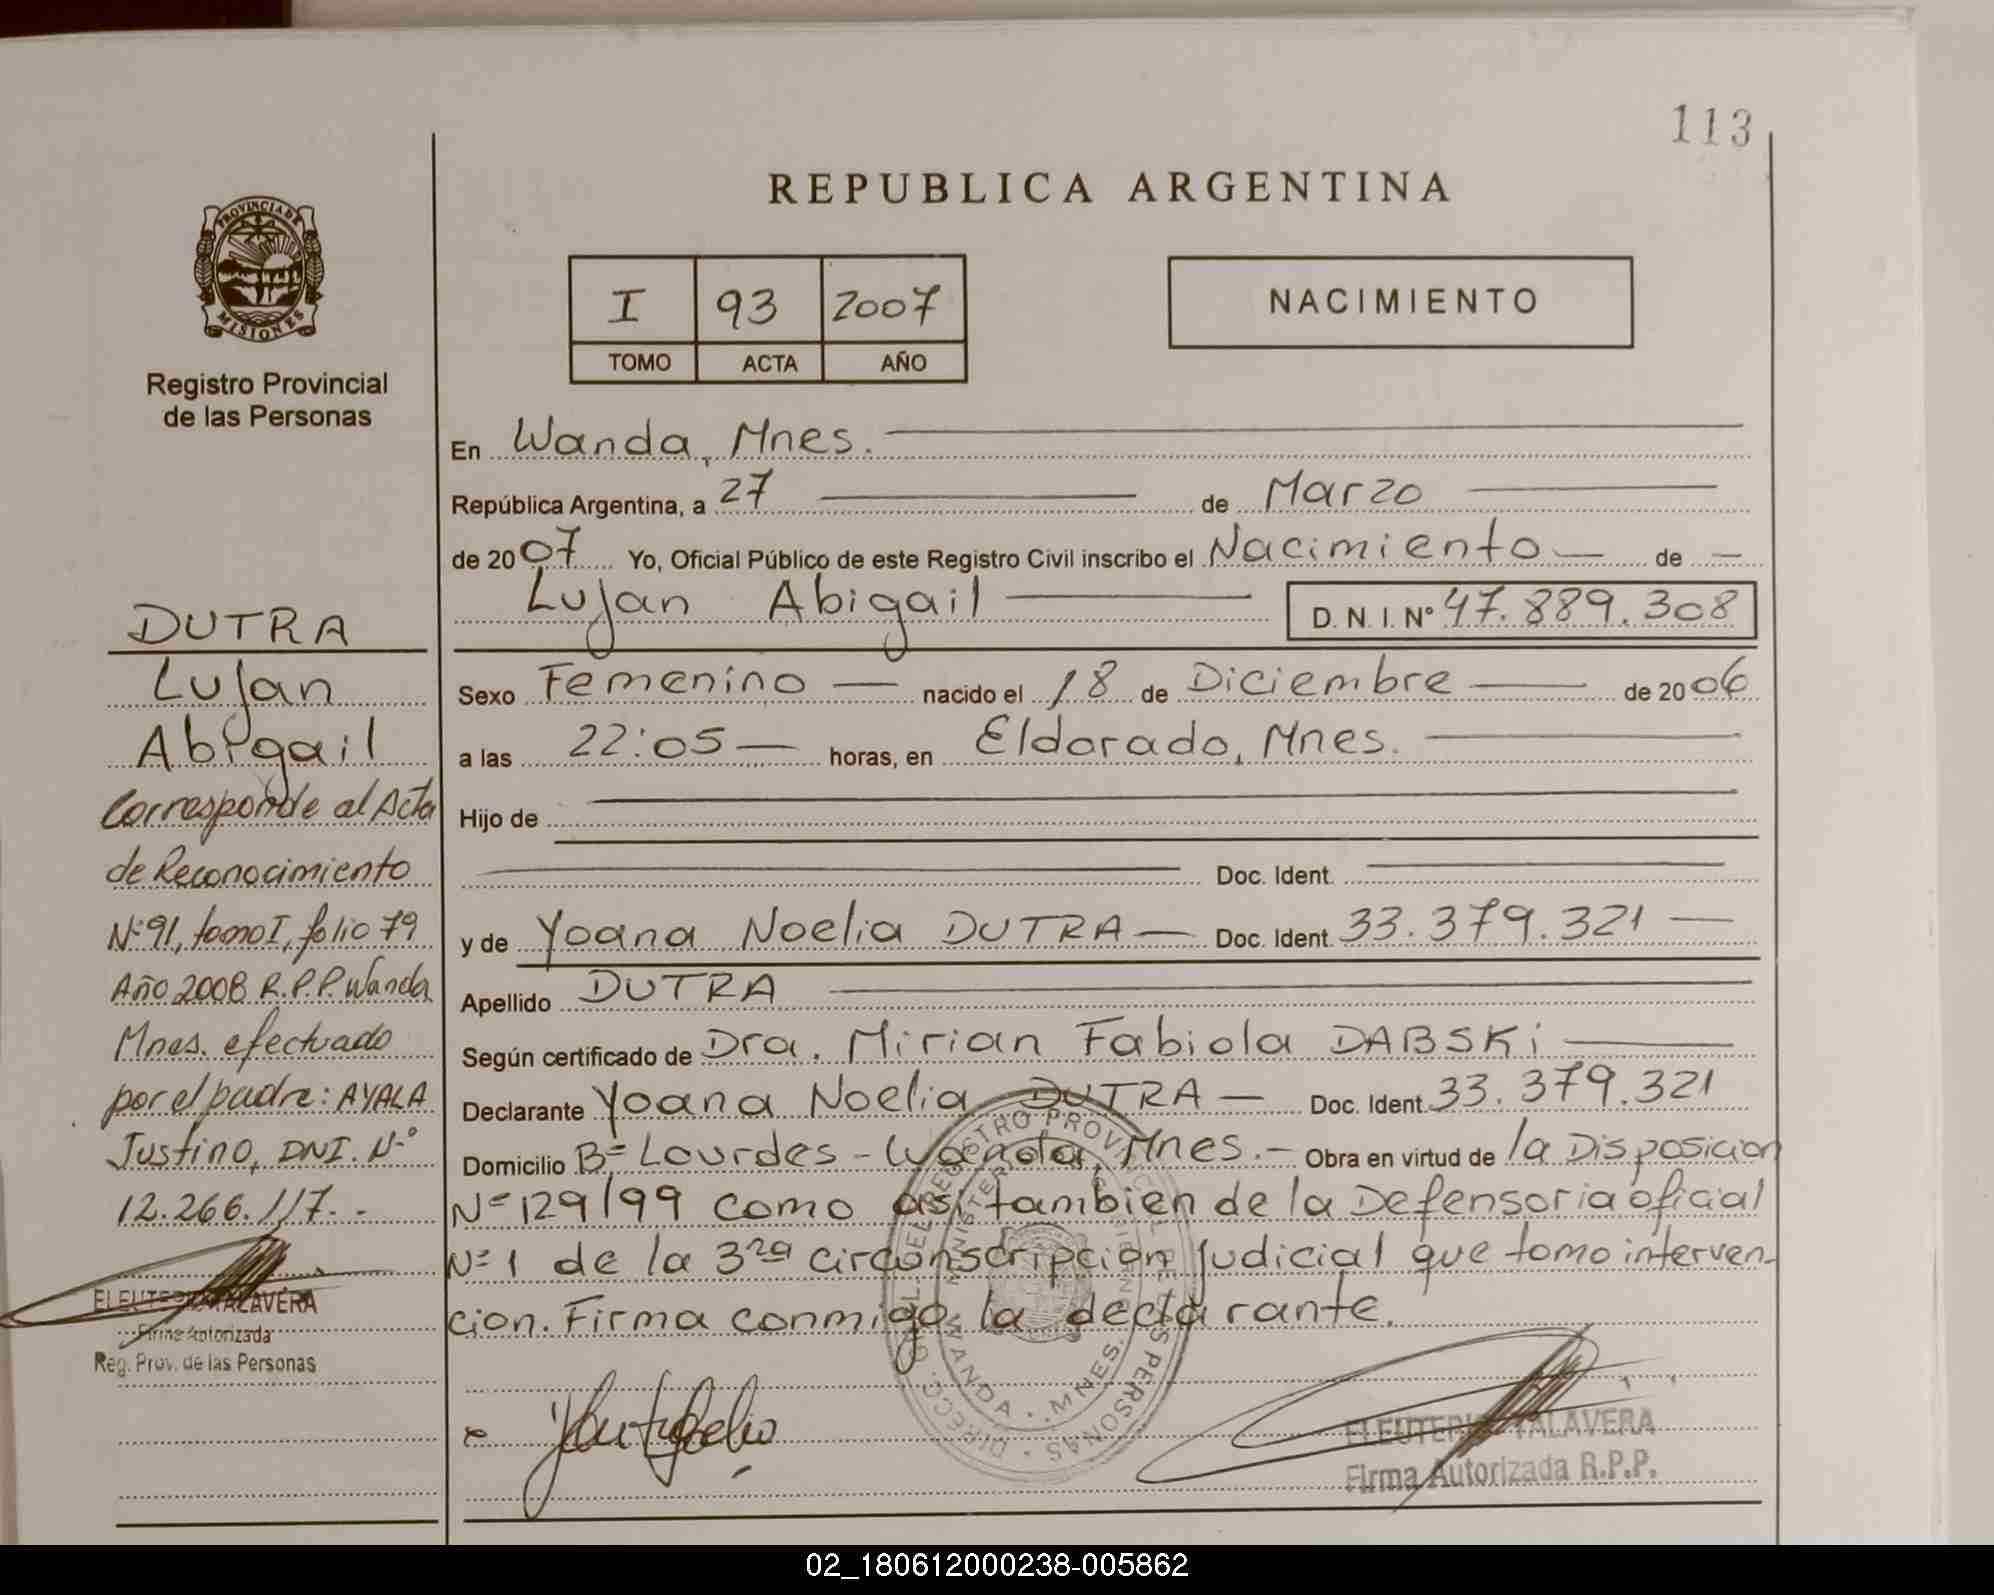 113
REPUBLICA ARGENTINA
PROVINCIA DE
MISIONES
Registro Provincial
de las Personas
I 93 2007
TOMO ACTA AÑO
NACIMIENTO
En Wanda, Mnes.
República Argentina, a 27 de Marzo
de 2007 Yo, Oficial Público de este Registro Civil inscribo el Nacimiento de
Lujan Abigail D.N.I. Nº 47.889.308
Sexo Femenino nacido el 18 de Diciembre de 2006
a las 22:05 horas, en Eldorado, Mnes.
Hijo de
Doc. Ident.
y de Yoana Noelia DUTRA Doc. Ident. 33.379.321
Apellido DUTRA
Según certificado de Dra. Mirian Fabiola DABSKi
Declarante Yoana Noelia DUTRA Doc. Ident. 33.379.321
Domicilio Bº Lourdes - Wanda, Mnes.- Obra en virtud de la Disposicion
Nº 129/99 como asi tambien de la Defensoria oficial
Nº 1 de la 3ra circonscripcion Judicial que tomo interven-
cion. Firma conmigo la declarante.
DUTRA
Lujan
Abigail
Corresponde al Acta
de Reconocimiento
Nº 91, tomo I, folio 79
Año 2008 R.P.P. Wanda
Mnes. efectuado
por el padre: AYALA
Justino, DNI. Nº
12.266.117.-
ELEUTERIO TALAVERA
Firma Autorizada
Reg. Prov. de las Personas
WANDA . MNES.
ELEUTERIO TALAVERA
Firma Autorizada R.P.P.
02_180612000238-005862